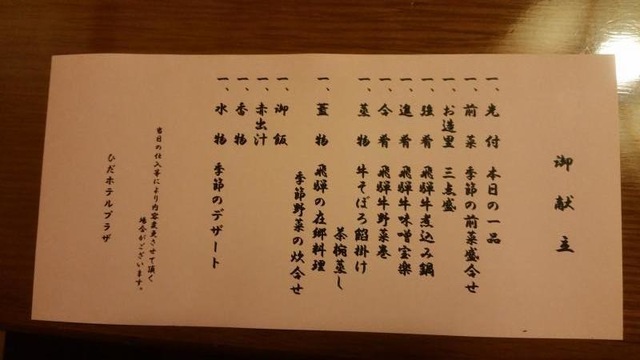 御献立
一、先付 本日の一品
一、前菜 季節の前菜盛合せ
一、お造里 三点盛
一、強肴 飛騨牛煮込み鍋
一、進肴 飛騨牛味噌宝楽
一、合肴 飛騨牛野菜巻
一、蒸物 牛そぼろ餡掛け
茶椀蒸し
一、蓋物 飛騨の在郷料理
季節野菜の炊合せ
一、御飯
一、赤出汁
一、香物
一、水物 季節のデザート
当日の仕入等により内容変更させて頂く
場合がございます。
ひだホテルプラザ